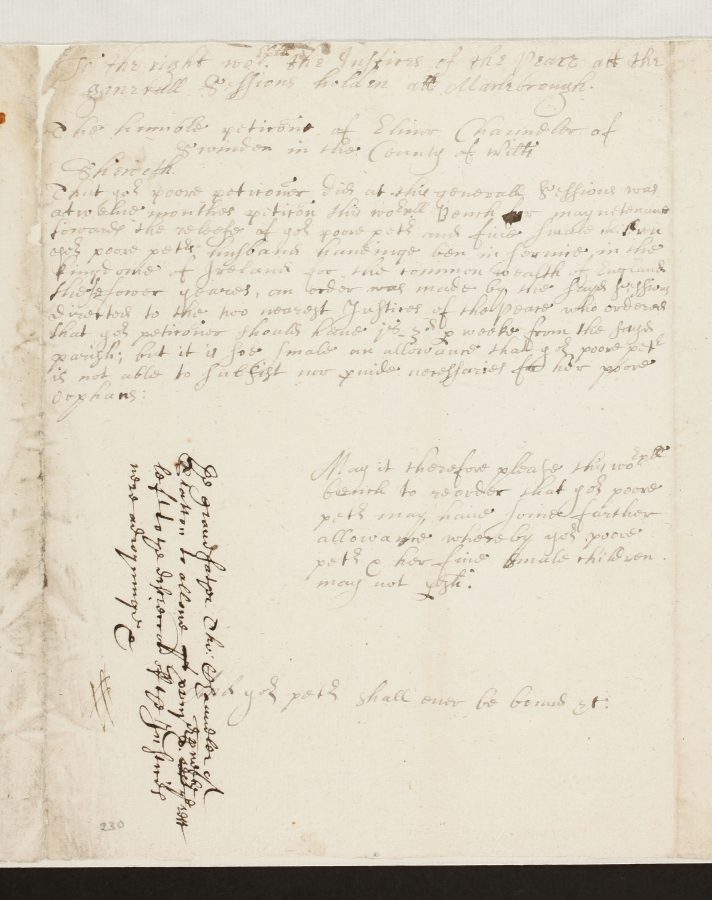 To the right wo:pll the Justices of the Peace att the
generall Sessions holden att Marlebrough.
The humble peticõn of Elinor Chaundeler of
Swinden in the County of Wilts
Sheweth.
That yor poore peticoner did at this generall Sessions was
atwelue monthes peticõn this worll Bench for mayntenance
towards the releefe of yor poore petr and fiue smale children
yor poore petrs husband haueinge ben in seruice, in the
kingdome of Ireland for the common wealth of England
these fower yeares, an order was made by the sayd sessions
directed to the two nearest Justices of the Peace who ordered
that yor peticoner should haue 1s–3d p weeke from the sayd
parish; but it is soe smale an allowance that yor poore petr
is not able to subsist nor pvide necessaries for her poore
orphans:
May it therefore please this worpll
bench to reorder that yor poore
petr may haue some farther
allowance whereby yor poore
petr & her fiue smale children
may not pish.
And yor petr shall euer be bound &c:
Ye grandfather Tho: Chaundeler of
Stratton to allowe
left to ye of ye Justices
nere adioyninge
230